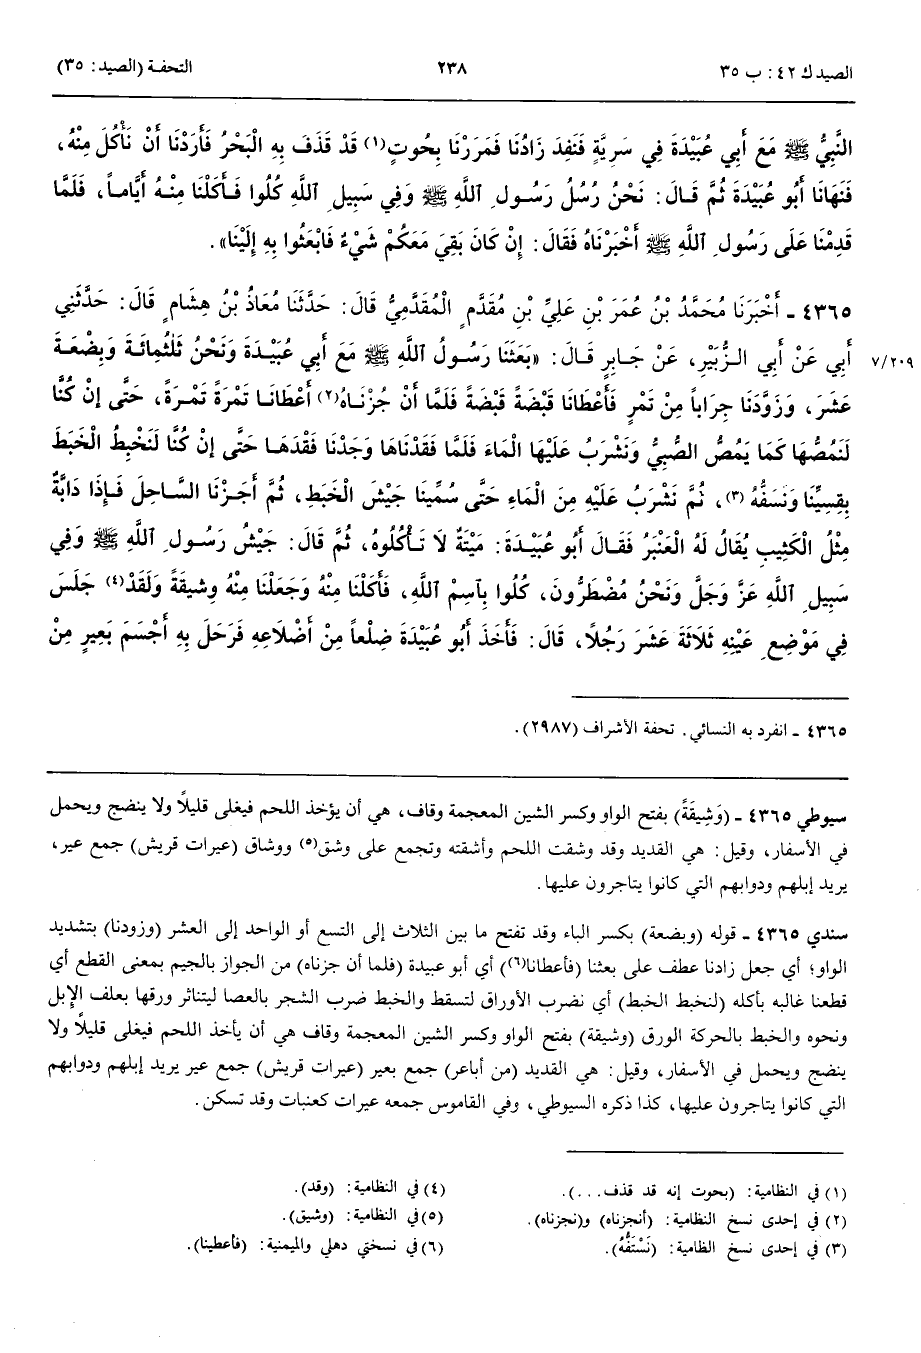 الصيد ك ٤٢: ب ٣٥
٢٣٨
التحفة (الصيد: ٣٥)
النَّبِيُّ ﷺ مَعَ أَبِي عُبَيْدَةَ فِي سَرِيَّةٍ فَنَفِدَ زَادُنَا فَمَرَرْنَا بِحُوتٍ(١) قَدْ قَذَفَ بِهِ الْبَحْرُ فَأَرَدْنَا أَنْ نَأْكُلَ مِنْهُ،
فَنَهَانَا أَبُو عُبَيْدَةَ ثُمَّ قَالَ: نَحْنُ رُسُلُ رَسُولِ اللَّهِ ﷺ وَفِي سَبِيلِ اللَّهِ كُلُوا فَأَكَلْنَا مِنْهُ أَيَّاماً، فَلَمَّا
قَدِمْنَا عَلَى رَسُولِ اللَّهِ ﷺ أَخْبَرْنَاهُ فَقَالَ: إِنْ كَانَ بَقِيَ مَعَكُمْ شَيْءٌ فَابْعَثُوا بِهِ إِلَيْنَا».
٤٣٦٥ ـ أَخْبَرَنَا مُحَمَّدُ بْنُ عُمَرَ بْنِ عَلِيِّ بْنِ مُقَدَّمٍ الْمُقَدَّمِيُّ قَالَ: حَدَّثَنَا مُعَاذُ بْنُ هِشَامٍ قَالَ: حَدَّثَنِي
أَبِي عَنْ أَبِي الزُّبَيْرِ، عَنْ جَابِرٍ قَالَ: «بَعَثَنَا رَسُولُ اللَّهِ ﷺ مَعَ أَبِي عُبَيْدَةَ وَنَحْنُ ثَلَثُمِائَةَ وَبِضْعَةَ
٧/٢٠٩
عَشَرَ، وَزَوَّدَنَا جِرَاباً مِنْ تَمْرٍ فَأَعْطَانَا قَبْضَةً قَبْضَةً فَلَمَّا أَنْ جُزْنَاهُ(٢) أَعْطَانَا تَمْرَةً تَمْرَةً، حَتَّى إِنْ كُنَّا
لَنَمُصُّهَا كَمَا يَمُصُّ الصَّبِيُّ وَنَشْرَبُ عَلَيْهَا الْمَاءَ فَلَمَّا فَقَدْنَاهَا وَجَدْنَا فَقْدَهَا حَتَّى إِنْ كُنَّا لَنَخْبِطُ الْخَبَطَ
بِقِسِيِّنَا وَنَسَفُّهُ(٣)، ثُمَّ نَشْرَبُ عَلَيْهِ مِنَ الْمَاءِ حَتَّى سُمِّينَا جَيْشَ الْخَبَطِ، ثُمَّ أَجَزْنَا السَّاحِلَ فَإِذَا دَابَّةٌ
مِثْلُ الْكَثِيبِ يُقَالُ لَهُ الْعَنْبَرُ فَقَالَ أَبُو عُبَيْدَةَ: مَيْتَةٌ لَا تَأْكُلُوهُ، ثُمَّ قَالَ: جَيْشُ رَسُولِ اللَّهِ ﷺ وَفِي
سَبِيلِ اللَّهِ عَزَّ وَجَلَّ وَنَحْنُ مُضْطَرُّونَ، كُلُوا بِاسْمِ اللَّهِ، فَأَكَلْنَا مِنْهُ وَجَعَلْنَا مِنْهُ وَشِيقَةً وَلَقَدْ(٤) جَلَسَ
فِي مَوْضِعِ عَيْنِهِ ثَلَاثَةَ عَشَرَ رَجُلًا، قَالَ: فَأَخَذَ أَبُو عُبَيْدَةَ ضِلْعاً مِنْ أَضْلَاعِهِ فَرَحَلَ بِهِ أَجْسَمَ بَعِيرٍ مِنْ
٤٣٦٥ ـ انفرد به النسائي. تحفة الأشراف (٢٩٨٧).
سيوطي ٤٣٦٥ ـ (وَشِيقَةً) بفتح الواو وكسر الشين المعجمة وقاف، هي أن يؤخذ اللحم فيغلى قليلًا ولا ينضج ويحمل
في الأسفار، وقيل: هي القديد وقد وشقت اللحم وأشقته وتجمع على وشق(٥) ووشاق (عيرات قريش) جمع عير،
يريد إبلهم ودوابهم التي كانوا يتاجرون عليها.
سندي ٤٣٦٥ ـ قوله (وبضعة) بكسر الباء وقد تفتح ما بين الثلاث إلى التسع أو الواحد إلى العشر (وزودنا) بتشديد
الواو؛ أي جعل زادنا عطف على بعثنا (فأعطانا(٦)) أي أبو عبيدة (فلما أن جزناه) من الجواز بالجيم بمعنى القطع أي
قطعنا غالبه بأكله (لنخبط الخبط) أي نضرب الأوراق لتسقط والخبط ضرب الشجر بالعصا ليتناثر ورقها بعلف الإبل
ونحوه والخبط بالحركة الورق (وشيقة) بفتح الواو وكسر الشين المعجمة وقاف هي أن يأخذ اللحم فيغلى قليلًا ولا
ينضج ويحمل في الأسفار، وقيل: هي القديد (من أباعر) جمع بعير (عيرات قريش) جمع عير يريد إبلهم ودوابهم
التي كانوا يتاجرون عليها، كذا ذكره السيوطي، وفي القاموس جمعه عيرات كعنبات وقد تسكن.
(١) في النظامية: (بحوت إنه قد قذف...).
(٢) في إحدى نسخ النظامية: (أنجزناه) و(نجزناه).
(٣) في إحدى نسخ الظامية: (نَسْتَفُّهُ).
(٤) في النظامية: (وقد).
(٥) في النظامية: (وشيق).
(٦) في نسختي دهلي والميمنية: (فأعطينا).